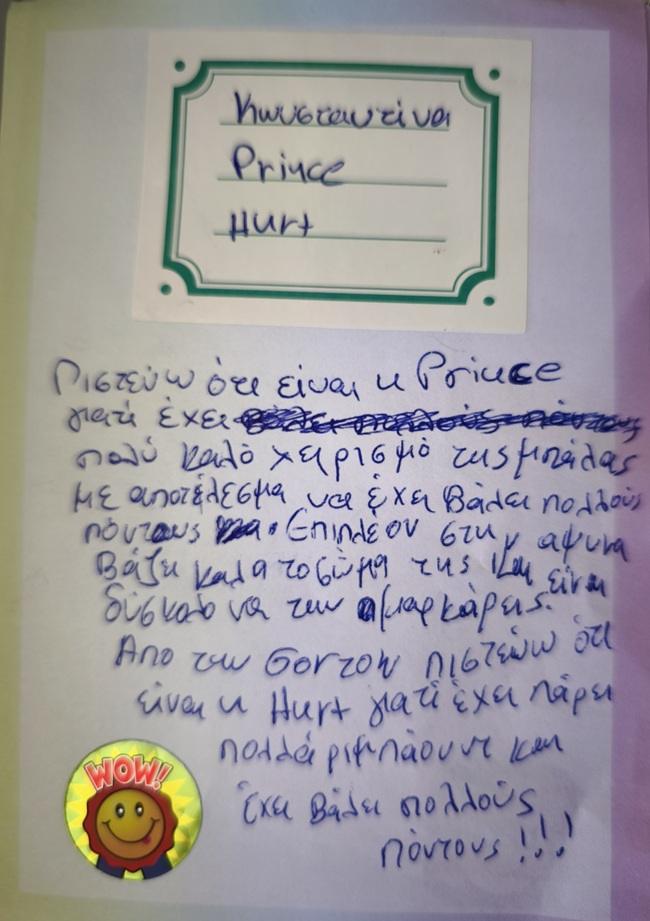 Κωνσταντίνα
Prince
Hurt
Πιστεύω ότι είναι η Prince
γιατί έχει
πολύ καλό χειρισμό της μπάλας
με αποτέλεσμα να έχει βάλει πολλούς
πόντους. Επιπλέον στην αμυνα
βάζει καλα το σώμα της και είναι
δύσκολο να την μαρκάρεις.
Απο την Gorton πιστεύω ότι
είναι η Hurt γιατί έχει πάρει
πολλά ριμπάουντ και
έχει βάλει πολλούς
πόντους!!!
WOW!